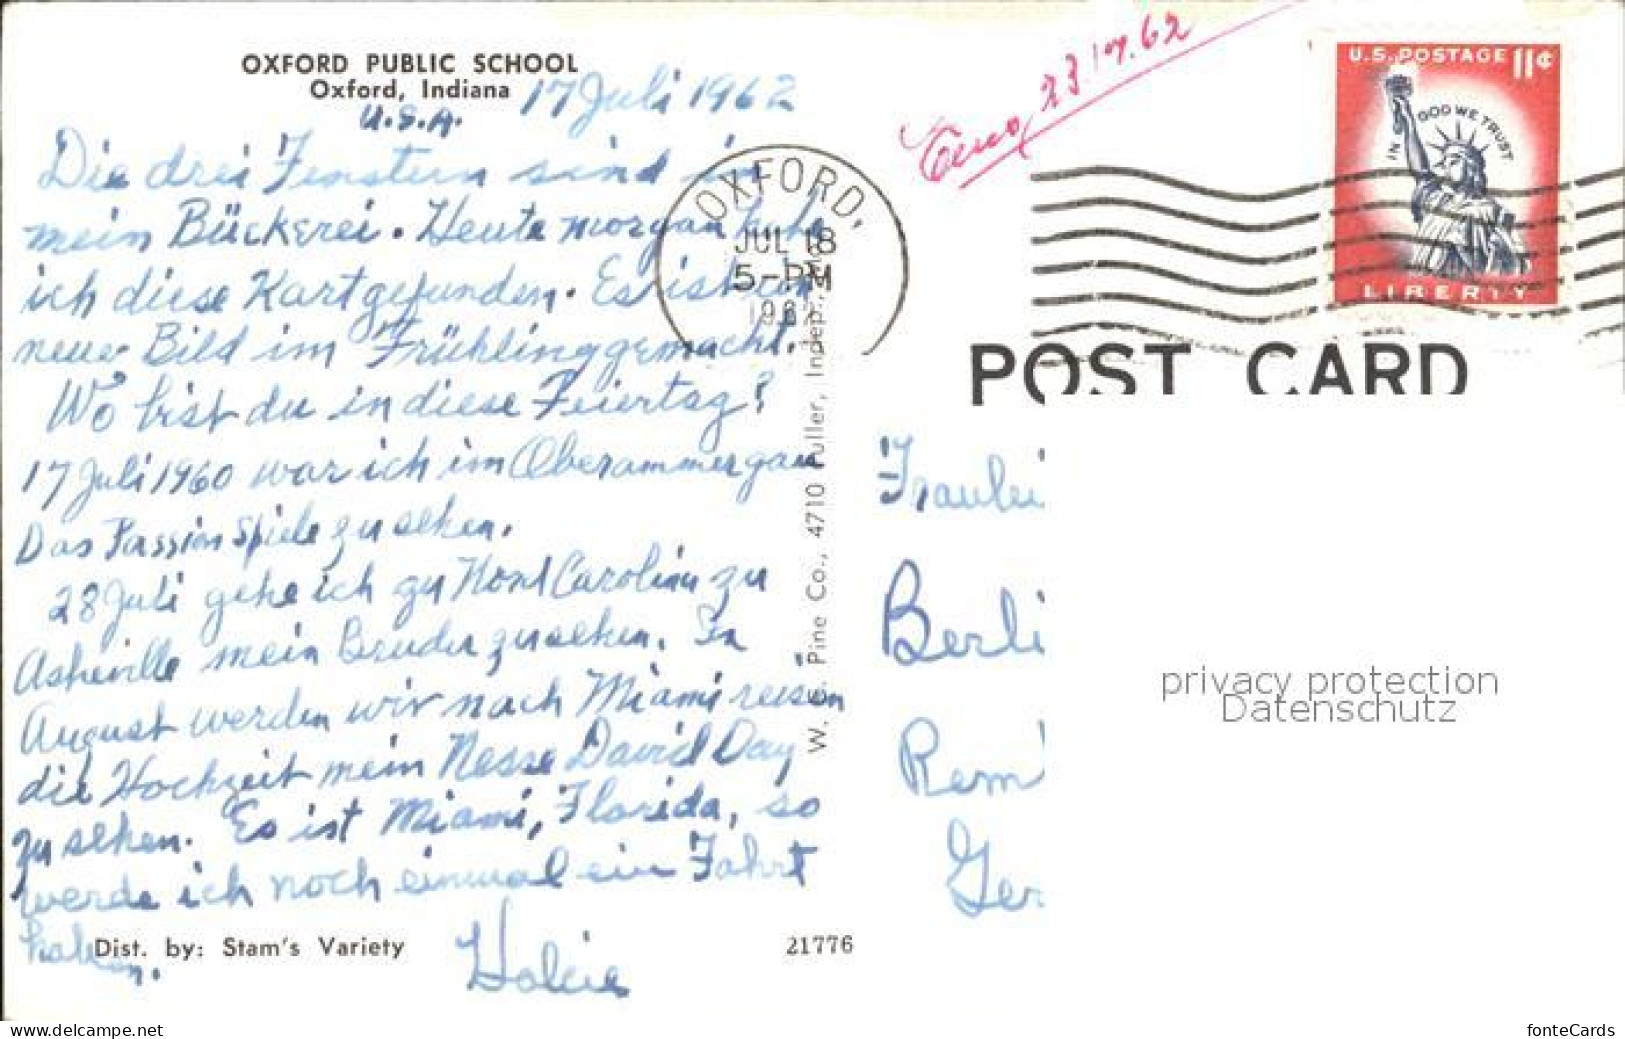 OXFORD PUBLIC SCHOOL
Oxford, Indiana
U.S.A.
17 Juli 1962
Die drei Fenstern sind in
mein Bückerei. Heute morgan habe
ich diese Kart gefunden. Es ist ein
neue Bild im Frühling gemacht.
Wo bist du in diese Feiertag?
17 Juli 1960 war ich im Oberammergau
Das Passion Spiele zu sehen.
28 Juli gehe ich zu Nord Carolina zu
Asheville mein Bruder zu sehen. In
August werden wir nach Miami reisen
die Hochzeit mein Nesse David Day
zu sehen. Es ist Miami, Florida, so
werde ich noch einmal ein Fahrt
haben.
Dist. by: Stam's Variety
21776
W. Pine Co., 4710 Fuller, Indep., Mo.
OXFORD,
JUL 18
5-PM
1962
23.17.62
U.S. POSTAGE 11¢
IN GOD WE TRUST
LIBERTY
POST CARD
Fraulei
Berli
Rem
Ger
privacy protection
Datenschutz
www.delcampe.net
fonteCards